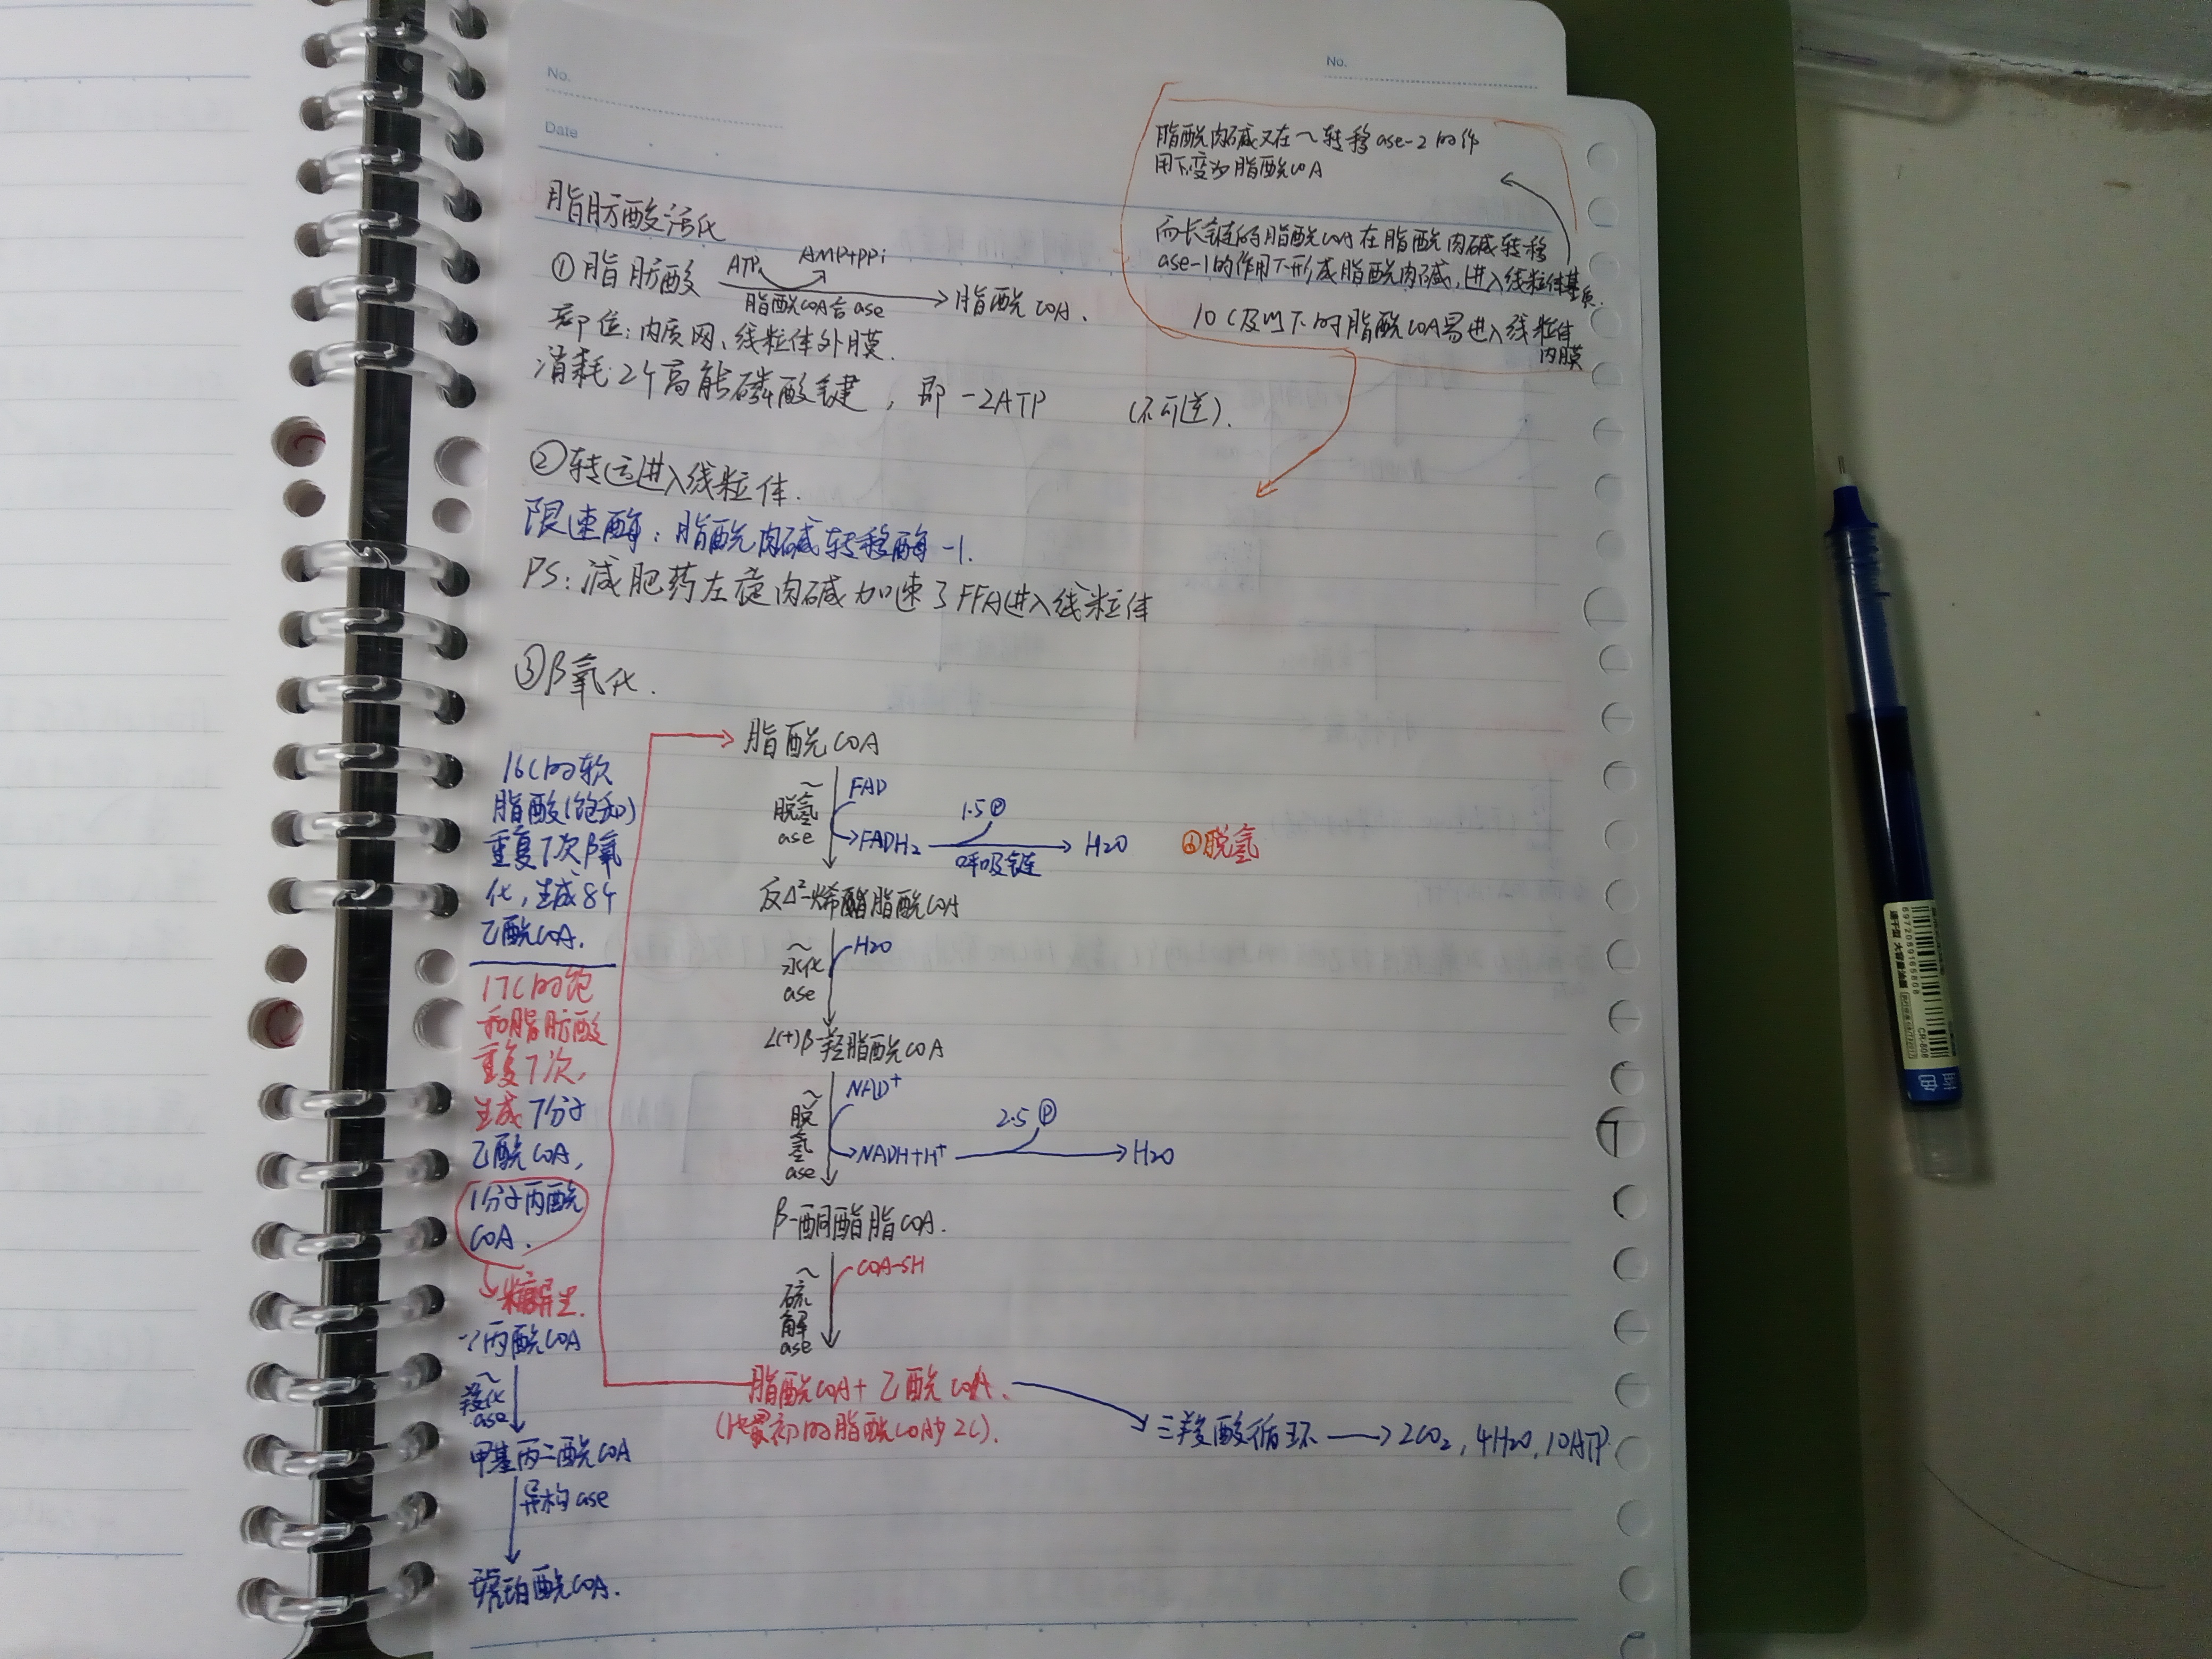 No.
Date
No.
脂酰肉碱又在～转移ase-2的作
用下变为脂酰COA
而长链的脂酰COA在脂酰肉碱转移
ase-1的作用下形成脂酰肉碱,进入线粒体基质.
10C及以下的脂酰COA易进入线粒体
内膜
脂肪酸活化
①脂肪酸
ATP
AMP+PPi
脂酰COA合ase
脂酰COA.
部位:内质网、线粒体外膜.
消耗2个高能磷酸键,即-2ATP
(不可逆).
②转运进入线粒体.
限速酶:脂酰肉碱转移酶-1.
PS:减肥药左旋肉碱加速了FFA进入线粒体
③β氧化.
16C的软
脂酸(饱和)
重复7次β氧
化,生成8个
乙酰COA.
17C的饱
和脂肪酸
重复7次,
生成7分子
乙酰COA,
1分子丙酰
COA.
糖异生.
丙酰COA
～
羧化
ase
甲基丙二酰COA
异构ase
琥珀酰COA.
脂酰COA
～
脱氢
ase
FAD
FADH₂
1.5Ⓟ
呼吸链
H2O
脱氢
反Δ²-烯酯脂酰COA
～
水化
ase
H2O
L(+)β-羟脂酰COA
～
脱
氢
ase
NAD⁺
NADH+H⁺
2.5Ⓟ
H2O
β-酮酯脂COA.
～
硫
解
ase
COA-SH
脂酰COA+乙酰COA.
(比最初的脂酰COA少2C).
三羧酸循环
2CO₂,4H2O,10ATP